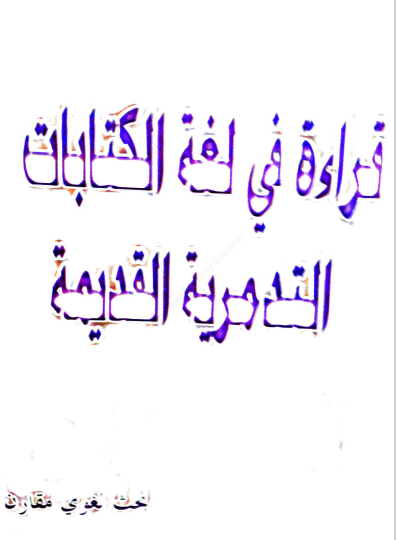 قراءة في لغة الكتابات
التدمرية القديمة
بحث لغوي مقارن